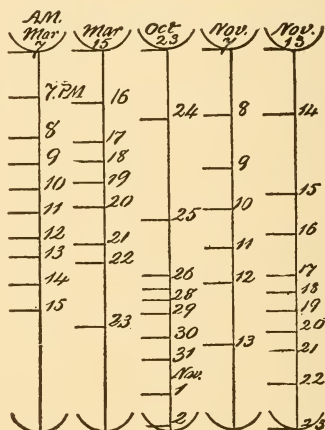 A.M.
Mar 7
7. P.M
8
9
10
11
12
13
14
15
Mar 15
16
17
18
19
20
21
22
23
Oct 23
24
25
26
28
29
30
31
Nov.
1
2
Nov. 7
8
9
10
11
12
13
Nov. 13
14
15
16
17
18
19
20
21
22
23